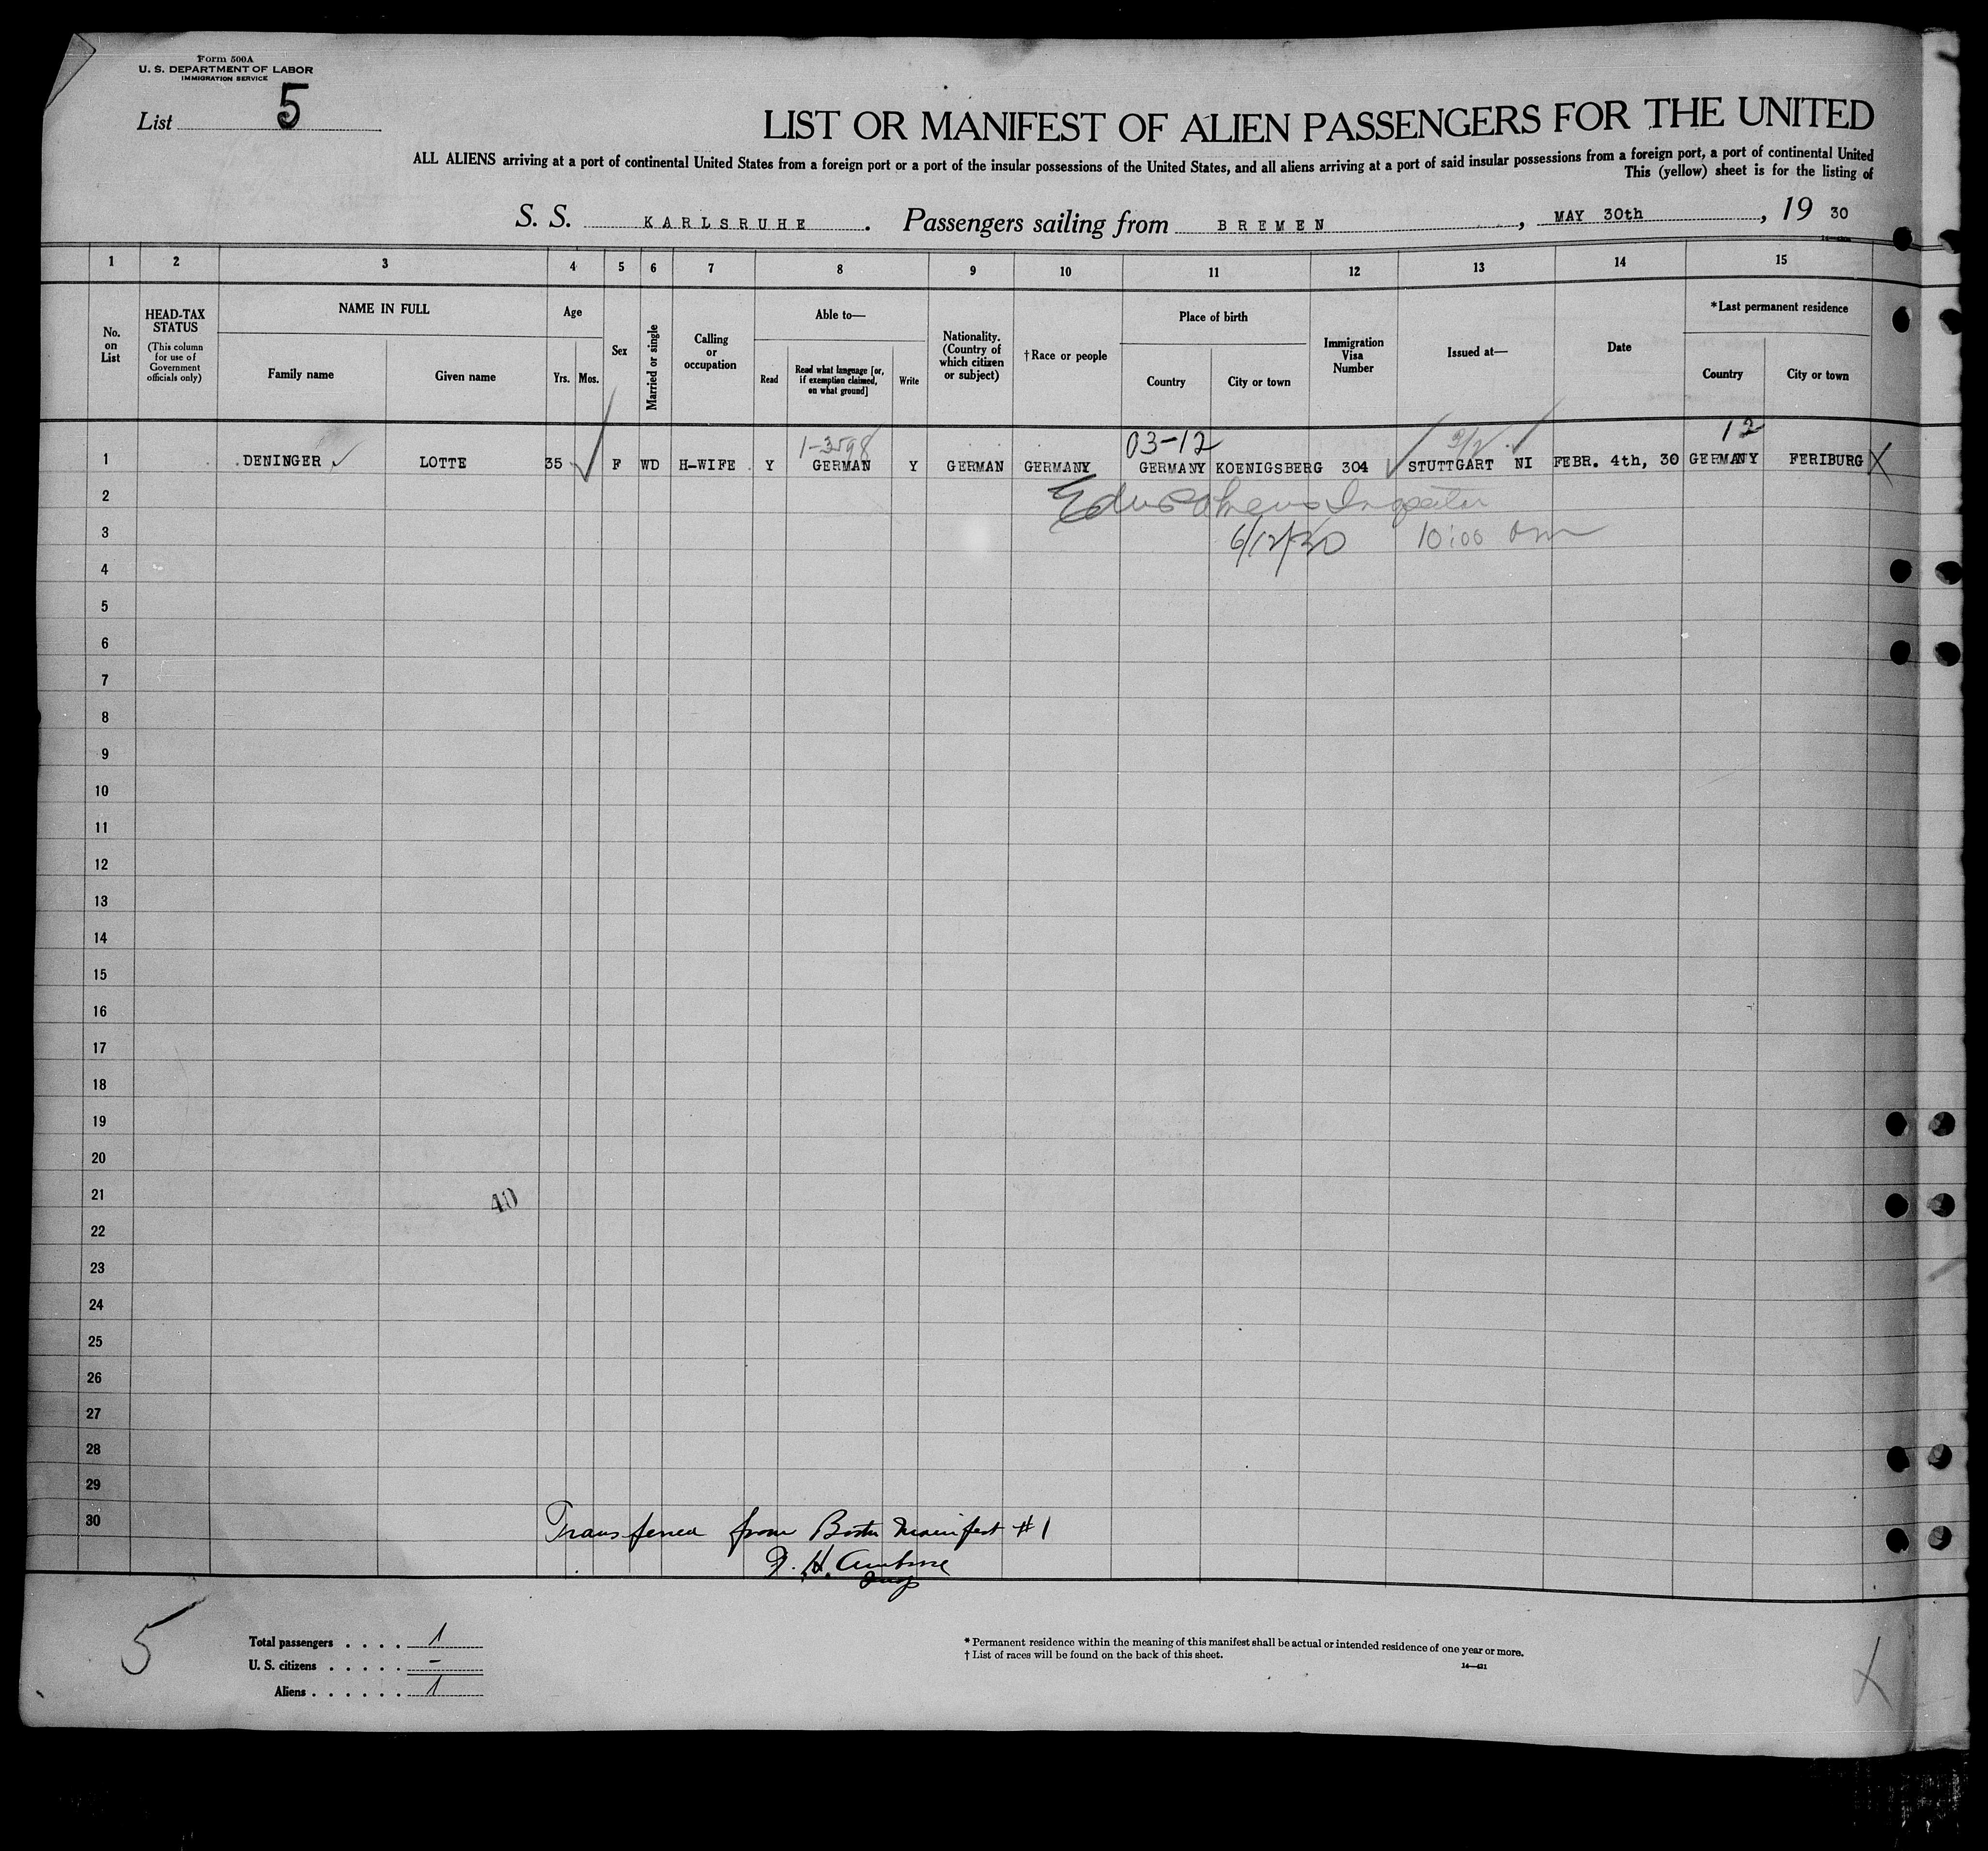 Form 500A
U. S. DEPARTMENT OF LABOR
IMMIGRATION SERVICE
List 5
LIST OR MANIFEST OF ALIEN PASSENGERS FOR THE UNITED
ALL ALIENS arriving at a port of continental United States from a foreign port or a port of the insular possessions of the United States, and all aliens arriving at a port of said insular possessions from a foreign port, a port of continental United
This (yellow) sheet is for the listing of
S. S. KARLSRUHE. Passengers sailing from BREMEN, MAY 30th, 19 30
1 2 3 4 5 6 7 8 9 10 11 12 13 14 15
No. on List
HEAD-TAX STATUS
(This column for use of Government officials only)
NAME IN FULL
Family name Given name
Age
Yrs. Mos.
Sex
Married or single
Calling or occupation
Able to—
Read
Read what language [or, if exemption claimed, on what ground]
Write
Nationality. (Country of which citizen or subject)
†Race or people
Place of birth
Country City or town
Immigration Visa Number
Issued at—
Date
*Last permanent residence
Country City or town
1-3598 03-12 12
1 DENINGER LOTTE 35 F WD H-WIFE Y GERMAN Y GERMAN GERMANY GERMANY KOENIGSBERG 304 STUTTGART NI FEBR. 4th, 30 GERMANY FERIBURG X
2 Inspector
3 6/12/30 10:00 am
4
5
6
7
8
9
10
11
12
13
14
15
16
17
18
19
20
21
40
22
23
24
25
26
27
28
29
30
Transferred from Boston Manifest #1
H. Ambrose
Insp
5
Total passengers . . . . 1
U. S. citizens . . . . . -
Aliens . . . . . . 1
* Permanent residence within the meaning of this manifest shall be actual or intended residence of one year or more.
† List of races will be found on the back of this sheet.
X